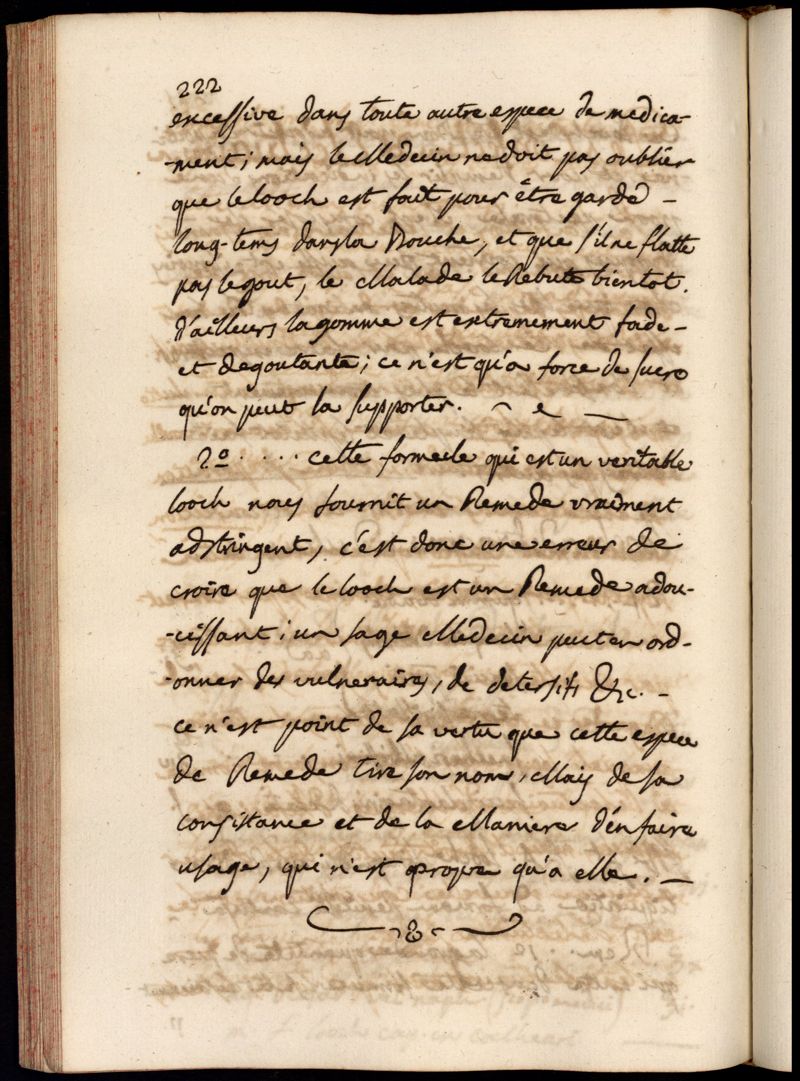 222
excessive dans toute autre espece de medica-
-ment; mais le Medecin ne doit pas oublier
que le looch est fait pour être gardé -
long-tems dans la Bouche, et que s'il ne flatte
pas le gout, le Malade le Rebute bientot.
d'ailleurs la gomme est extremement fade -
et degoutante; ce n'est qu'a force de sucre
qu'on peut la supporter.
2º .... cette formule qui est un veritable
looch nous fournit un Remede vraiment
adstringent, c'est donc une erreur de
croire que le looch est un Remede adou-
-cissant; un sage Medecin peut en ord-
-onner des vulneraires, de detersifs &c. -
ce n'est point de sa vertu que cette espece
de Remede tire son nom, Mais de sa
consistance et de la Maniere d'en faire
usage, qui n'est propre qu'a elle. -